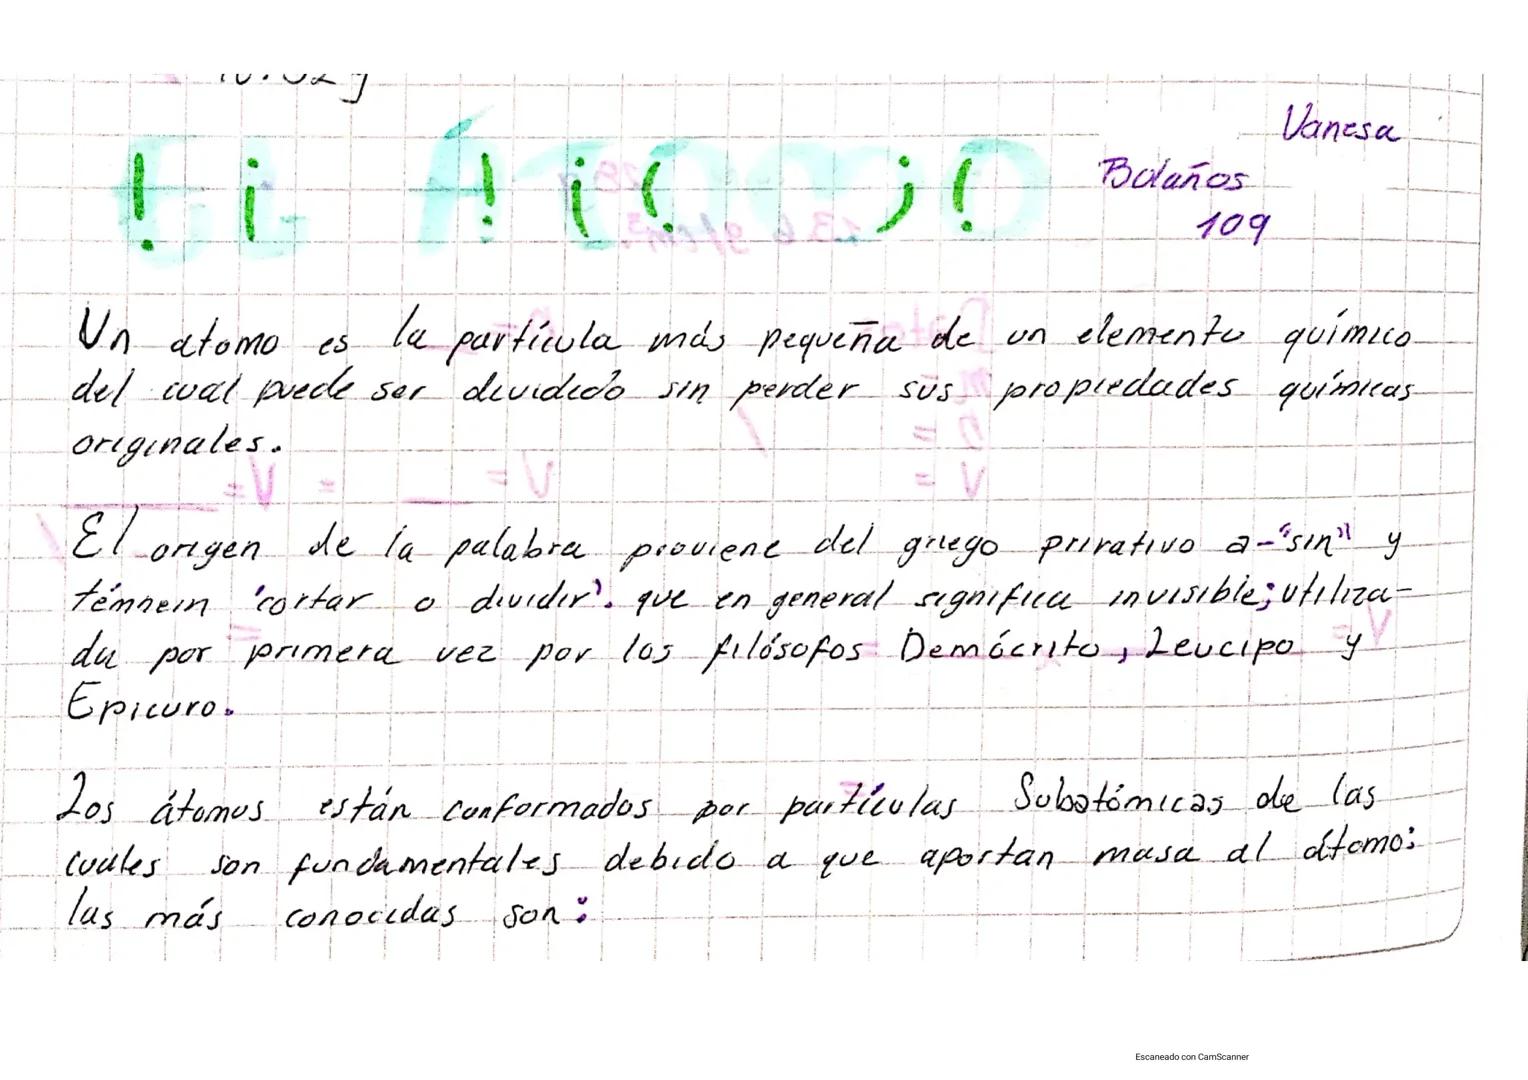 El Átomo
Vanesa
Bolaños
109
Un atomo es la partícula más pequeña de un elemento químico
del cual puede ser dividido sin perder sus propiedades químicas
originales.
El origen de la palabra proviene del griego privativo a-"sin" y
témnein 'cortar o dividir'. que en general significa invisible; utiliza-
da por primera vez por los filósofos Demócrito, Leucipo y
Epicuro.
Los átomos están conformados por partículas Subatómicas de las
cuales son fundamentales debido a que aportan masa al átomo:
las más conocidas son:
Escaneado con CamScanner